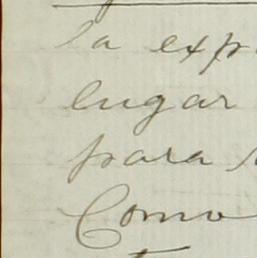 la exp
lugar
para
Como